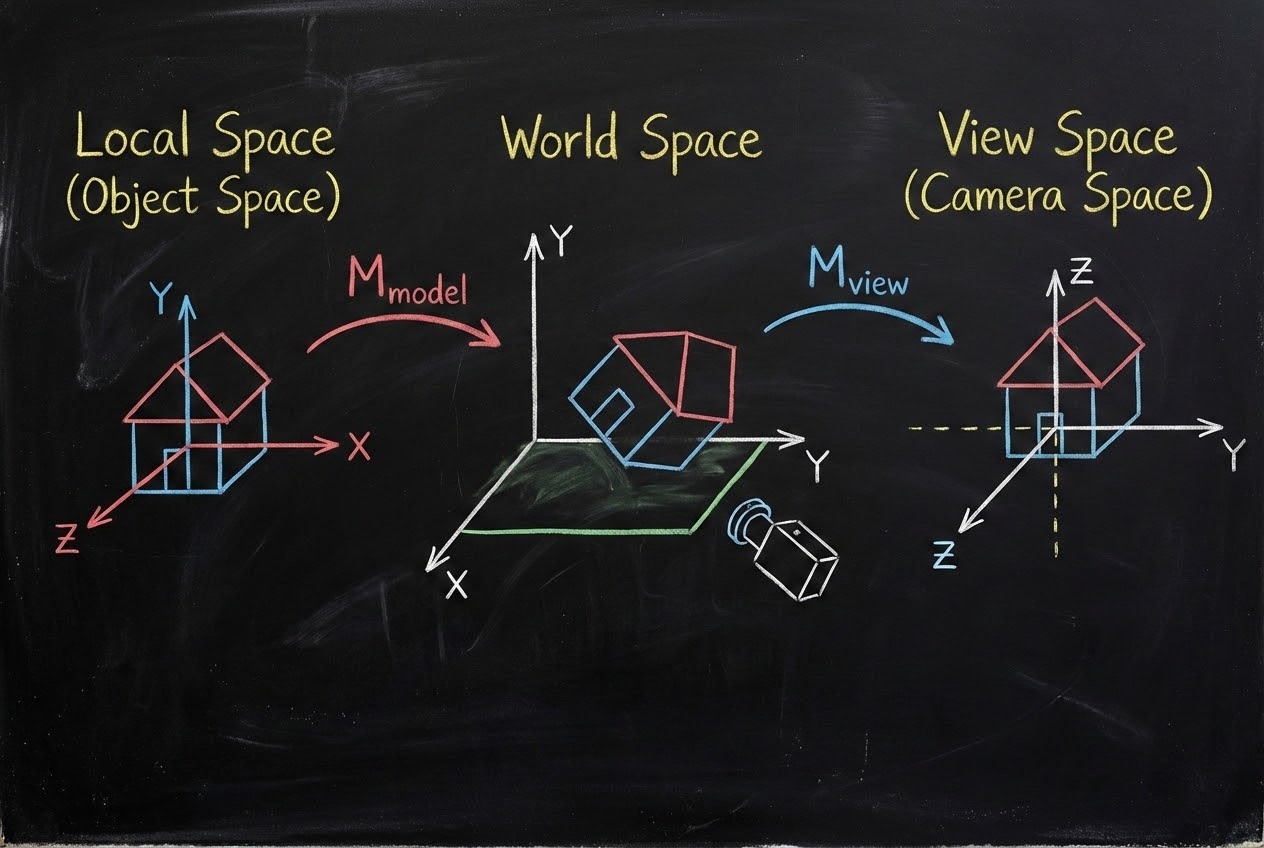 Local Space
(Object Space)
World Space
View Space
(Camera Space)
Mmodel
Mview
Y
X
Z
Y
Y
X
Z
Y
Z